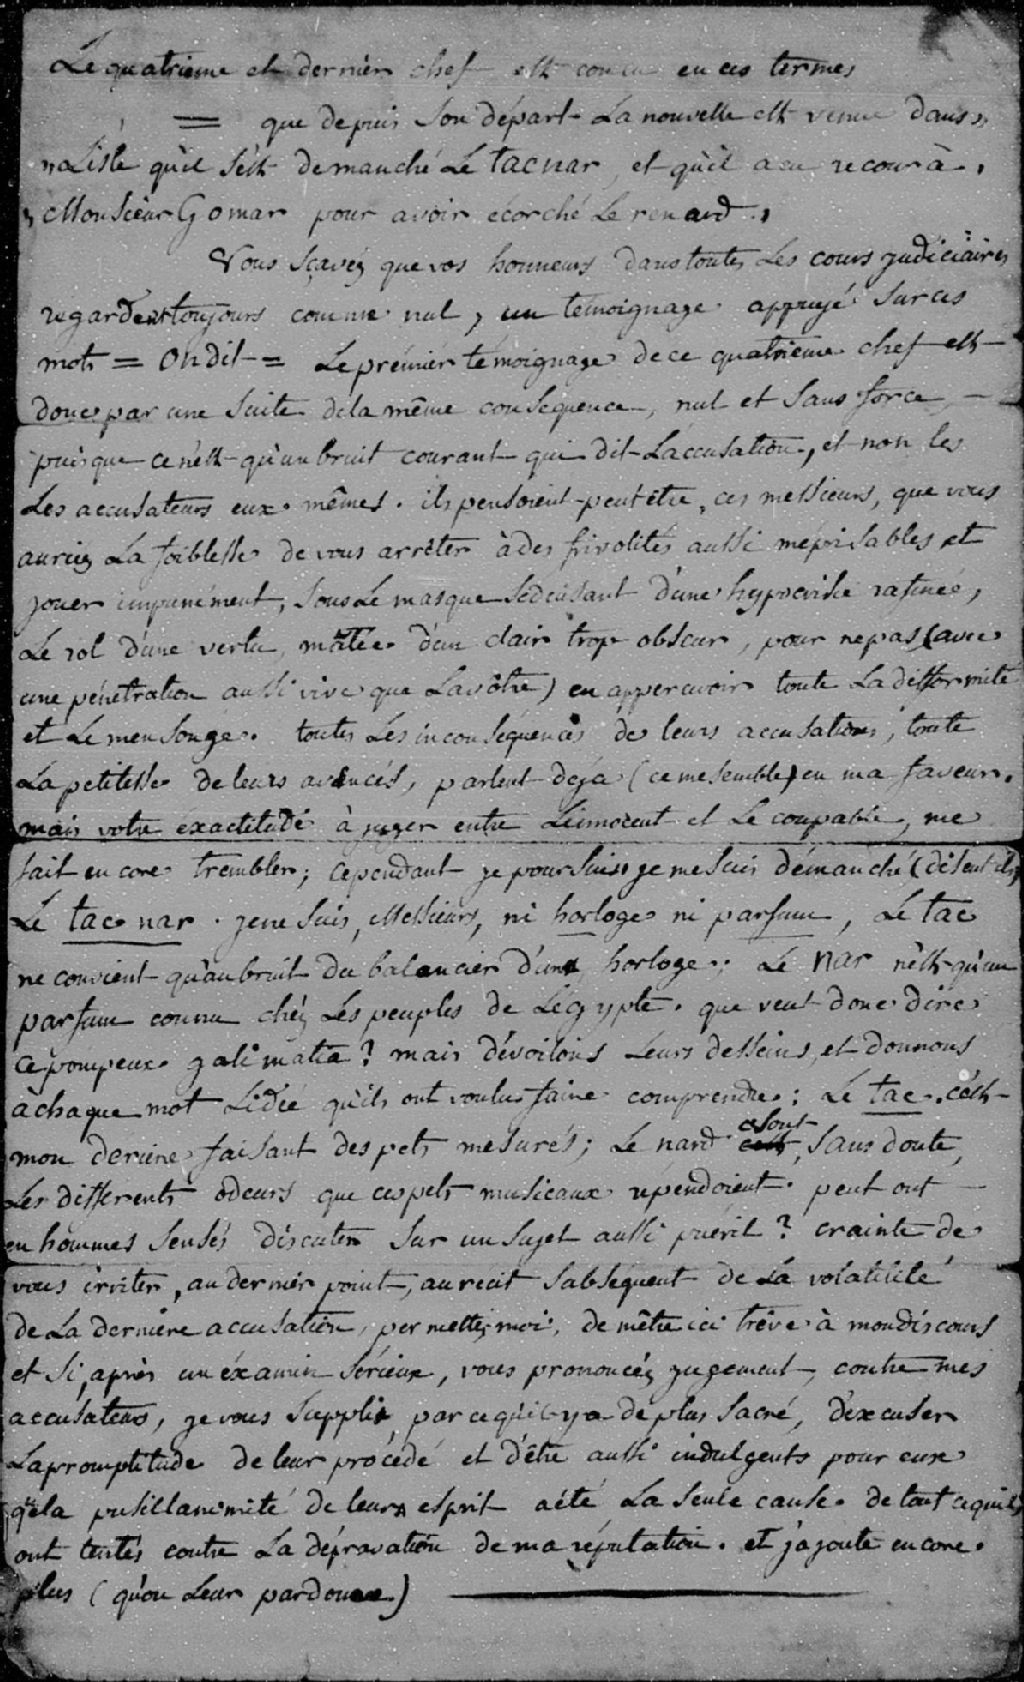 Le quatrieme et dernier chef est concu en ces termes
= que depuis son départ La nouvelle est venue dans "
" Lisle qu'il s'est demanché Le tacnar, et qu'il a eu recour à "
" Monsieur Gomar pour avoir écorché Le renard "
Vous sçavéz que vos honneurs dans toutes Les cours judiciaires
regardent toujours comme nul, un témoignage appuyé sur ces
mots = On dit = Le prémier témoignage de ce quatrieme chef est
donc par une suite de la même consequence, nul et sans force,
puisque ce n'est qu'un bruit courant qui dit L'accusation, et non les
Les accusateurs eux mêmes. ils pensoient peutêtre, ces messieurs, que vous
auriez La foiblesse de vous arrêter à des frivolités aussi méprisables et
jouer impunément, sous Le masque séduisant d'une hypocrisie rafinée,
Le rol d'une vertu, mêlée d'un clair trop obscur, pour ne pas (avec
une pénétration aussi vive que La vôtre) en appercevoir toute La difformité
et Le mensonge. toutes Les inconséquences de leurs accusations, toute
La petitesse de leurs avancés, parlent déja (ce me semble) en ma faveur.
mais votre éxactitude à juger entre L'innocent et Le coupable, me
fait encore trembler; cependant je poursuis: je me suis démanché (disent ils)
Le tac nar. je ne suis, Messieurs, ni horloge ni parfum, Le tac
ne convient qu'au bruit du balancier d'une horloge; Le nar n'est qu'un
parfum connu chéz Les peuples de L'égypte. que veut donc dire
ce pompeux galimatia? mais dévoilons Leurs desseins, et donnons
à chaque mot L'idée qu'ils ont voulu faire comprendre: Le tac. c'est
mon deriere faisant des pets mesurés; Le nard ce sont, sans doute,
Les differents odeurs que ces pets musicaux répendoient. peut ont
en hommes sensés discuter sur un sujet aussi puéril? crainte de
vous irriter, au dernier point, au recit subséquent de La volatilité
de La derniere accusation, permettez moi, de mêtre ici trève à mon discours
et si, après un éxamin sérieux, vous prononcéz jugement, contre mes
accusateurs, je vous supplie, par ce qu'il y a de plus sacré, d'excuser
La promptitude de leur procédé et d'être aussi indulgents pour eux
q'la pusillanimité de leurs esprit a été La seule cause de tout ce qu'ils
ont tentés contre La dépravation de ma réputation. et j'ajoute encore
plus (qu'on Leur pardonne)